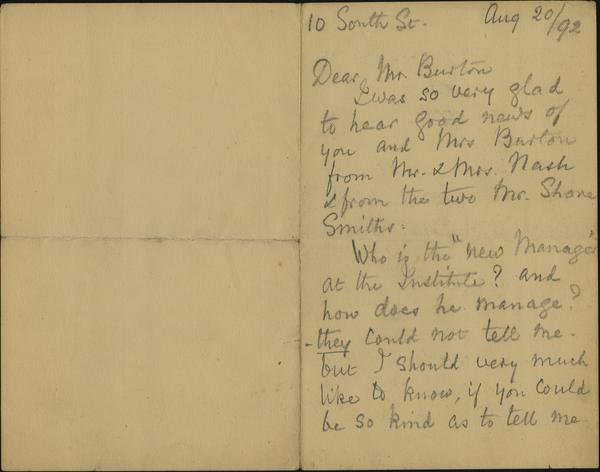 10 South St. Aug 20/92
Dear Mr. Burton
I was so very glad
to hear good news of
you and Mrs Burton
from Mr. & Mrs. Nash
& from the two Mr. Shore
Smiths:
Who is the "new Manager"
at the Institute? and
how does he manage?
-they could not tell me.
but I should very much
like to know, if you could
be so kind as to tell me